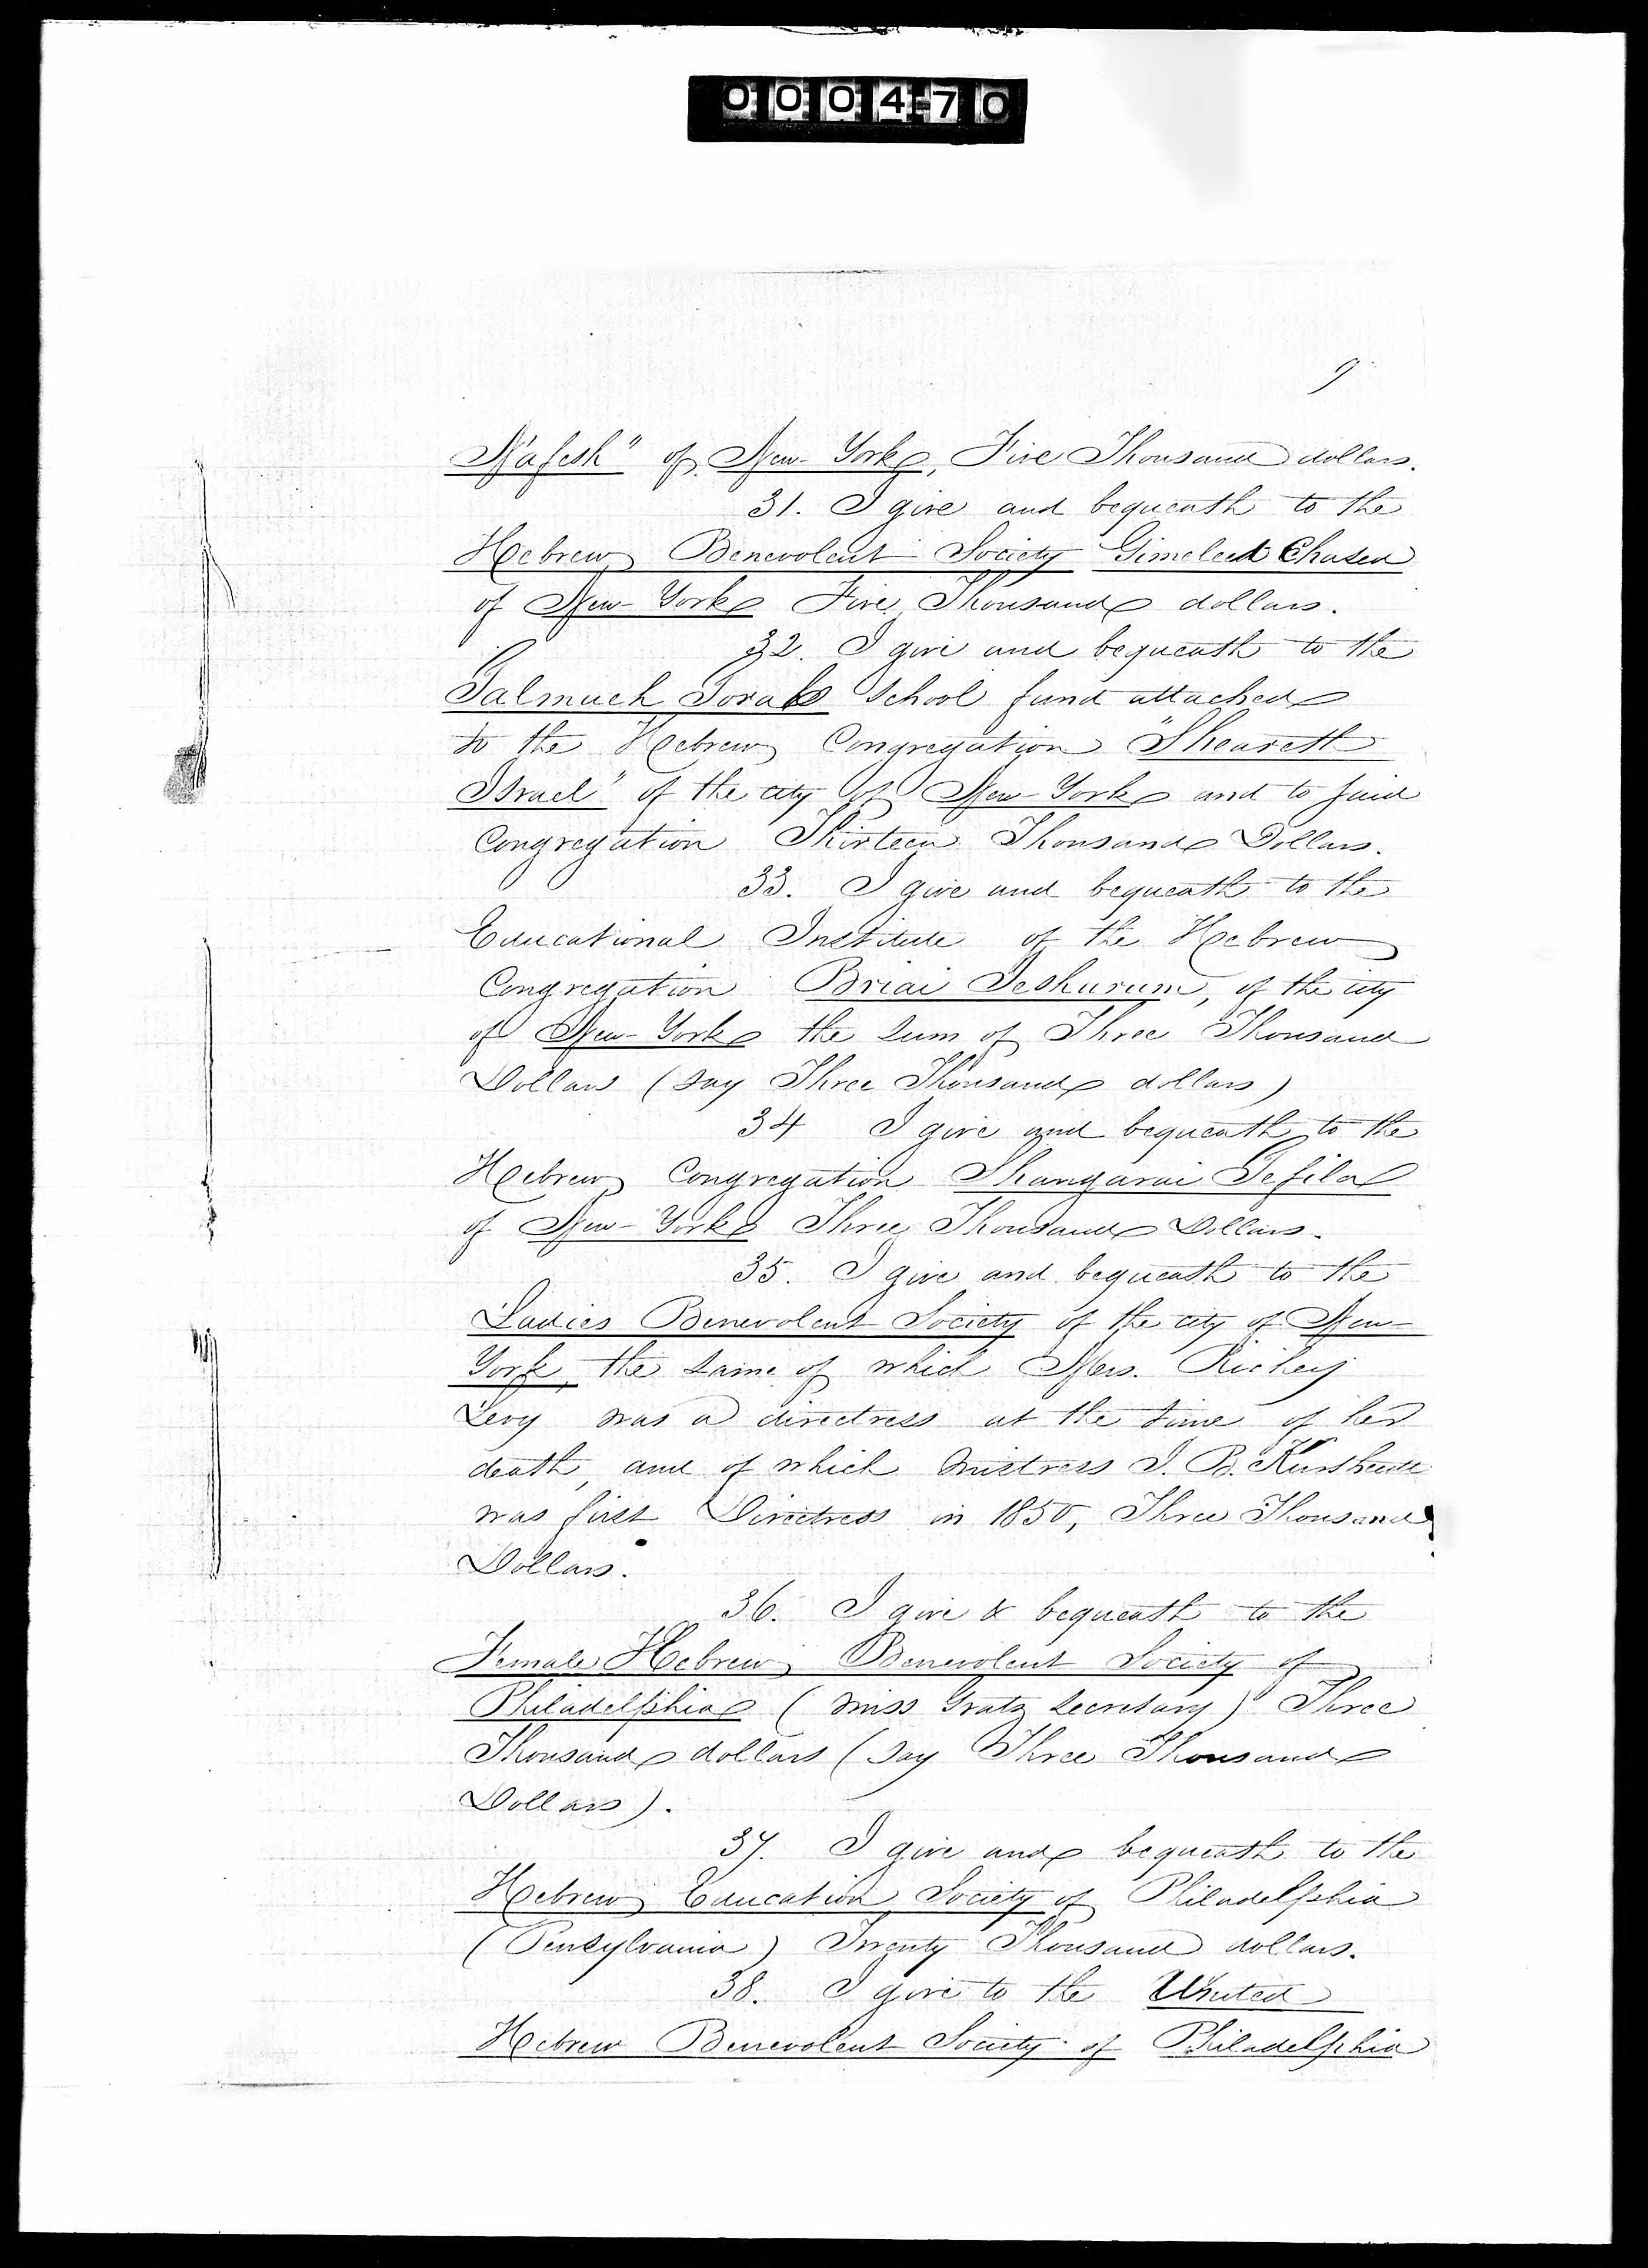 000470
9
Nafesh" of New-York, Five Thousand dollars.
31. I give and bequeath to the
Hebrew Benevolent Society Gimeleet Chased
of New-York Five Thousand dollars.
32. I give and bequeath to the
Talmuch Torah School fund attached
to the Hebrew Congregation "Sheareth
Israel" of the city of New-York and to said
Congregation Thirteen Thousand Dollars.
33. I give and bequeath to the
Educational Institute of the Hebrew
Congregation Briai Jeshurum, of the city
of New-York the sum of Three Thousand
Dollars (say Three Thousand dollars)
34 I give and bequeath to the
Hebrew Congregation Shangarai Tefila
of New-York Three Thousand Dollars.
35. I give and bequeath to the
Ladies Benevolent Society of the city of New-
York, the same of which Mrs. Richey
Levy was a directress at the time of her
death, and of which Mistress I. B. Kursheedt
was first Directress in 1850, Three Thousand
Dollars.
36. I give & bequeath to the
Female Hebrew Benevolent Society of
Philadelphia (Miss Gratz Secretary) Three
Thousand dollars (say Three Thousand
Dollars).
37. I give and bequeath to the
Hebrew Education Society of Philadelphia
(Pensylvania) Twenty Thousand dollars.
38. I give to the United
Hebrew Benevolent Society of Philadelphia